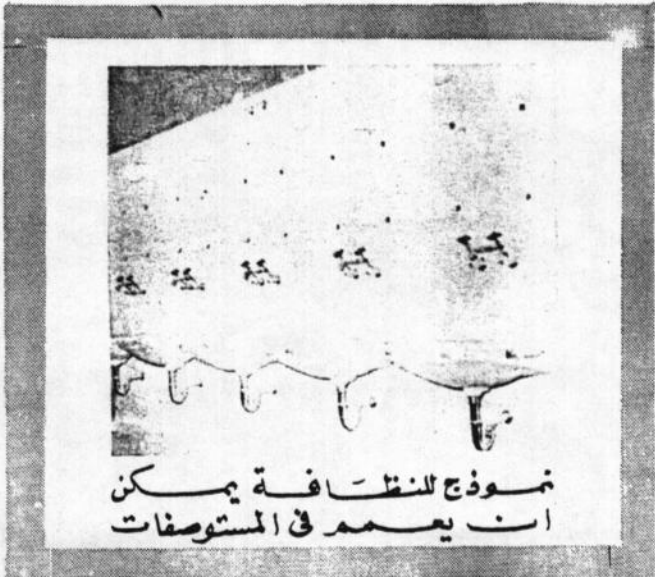 نموذج للنظافة يمكن
ان يعمم فى المستوصفات